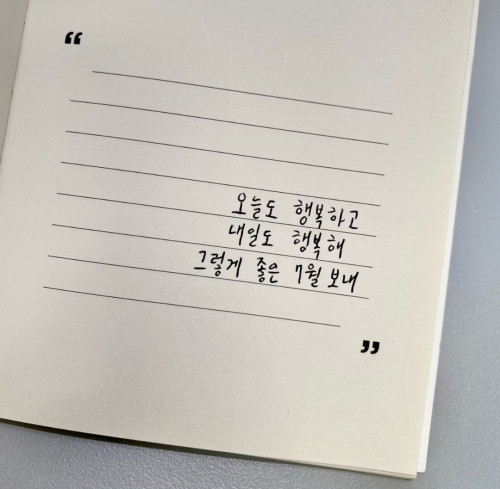 ❝
오늘도 행복하고
내일도 행복해
그렇게 좋은 7월 보내
❞